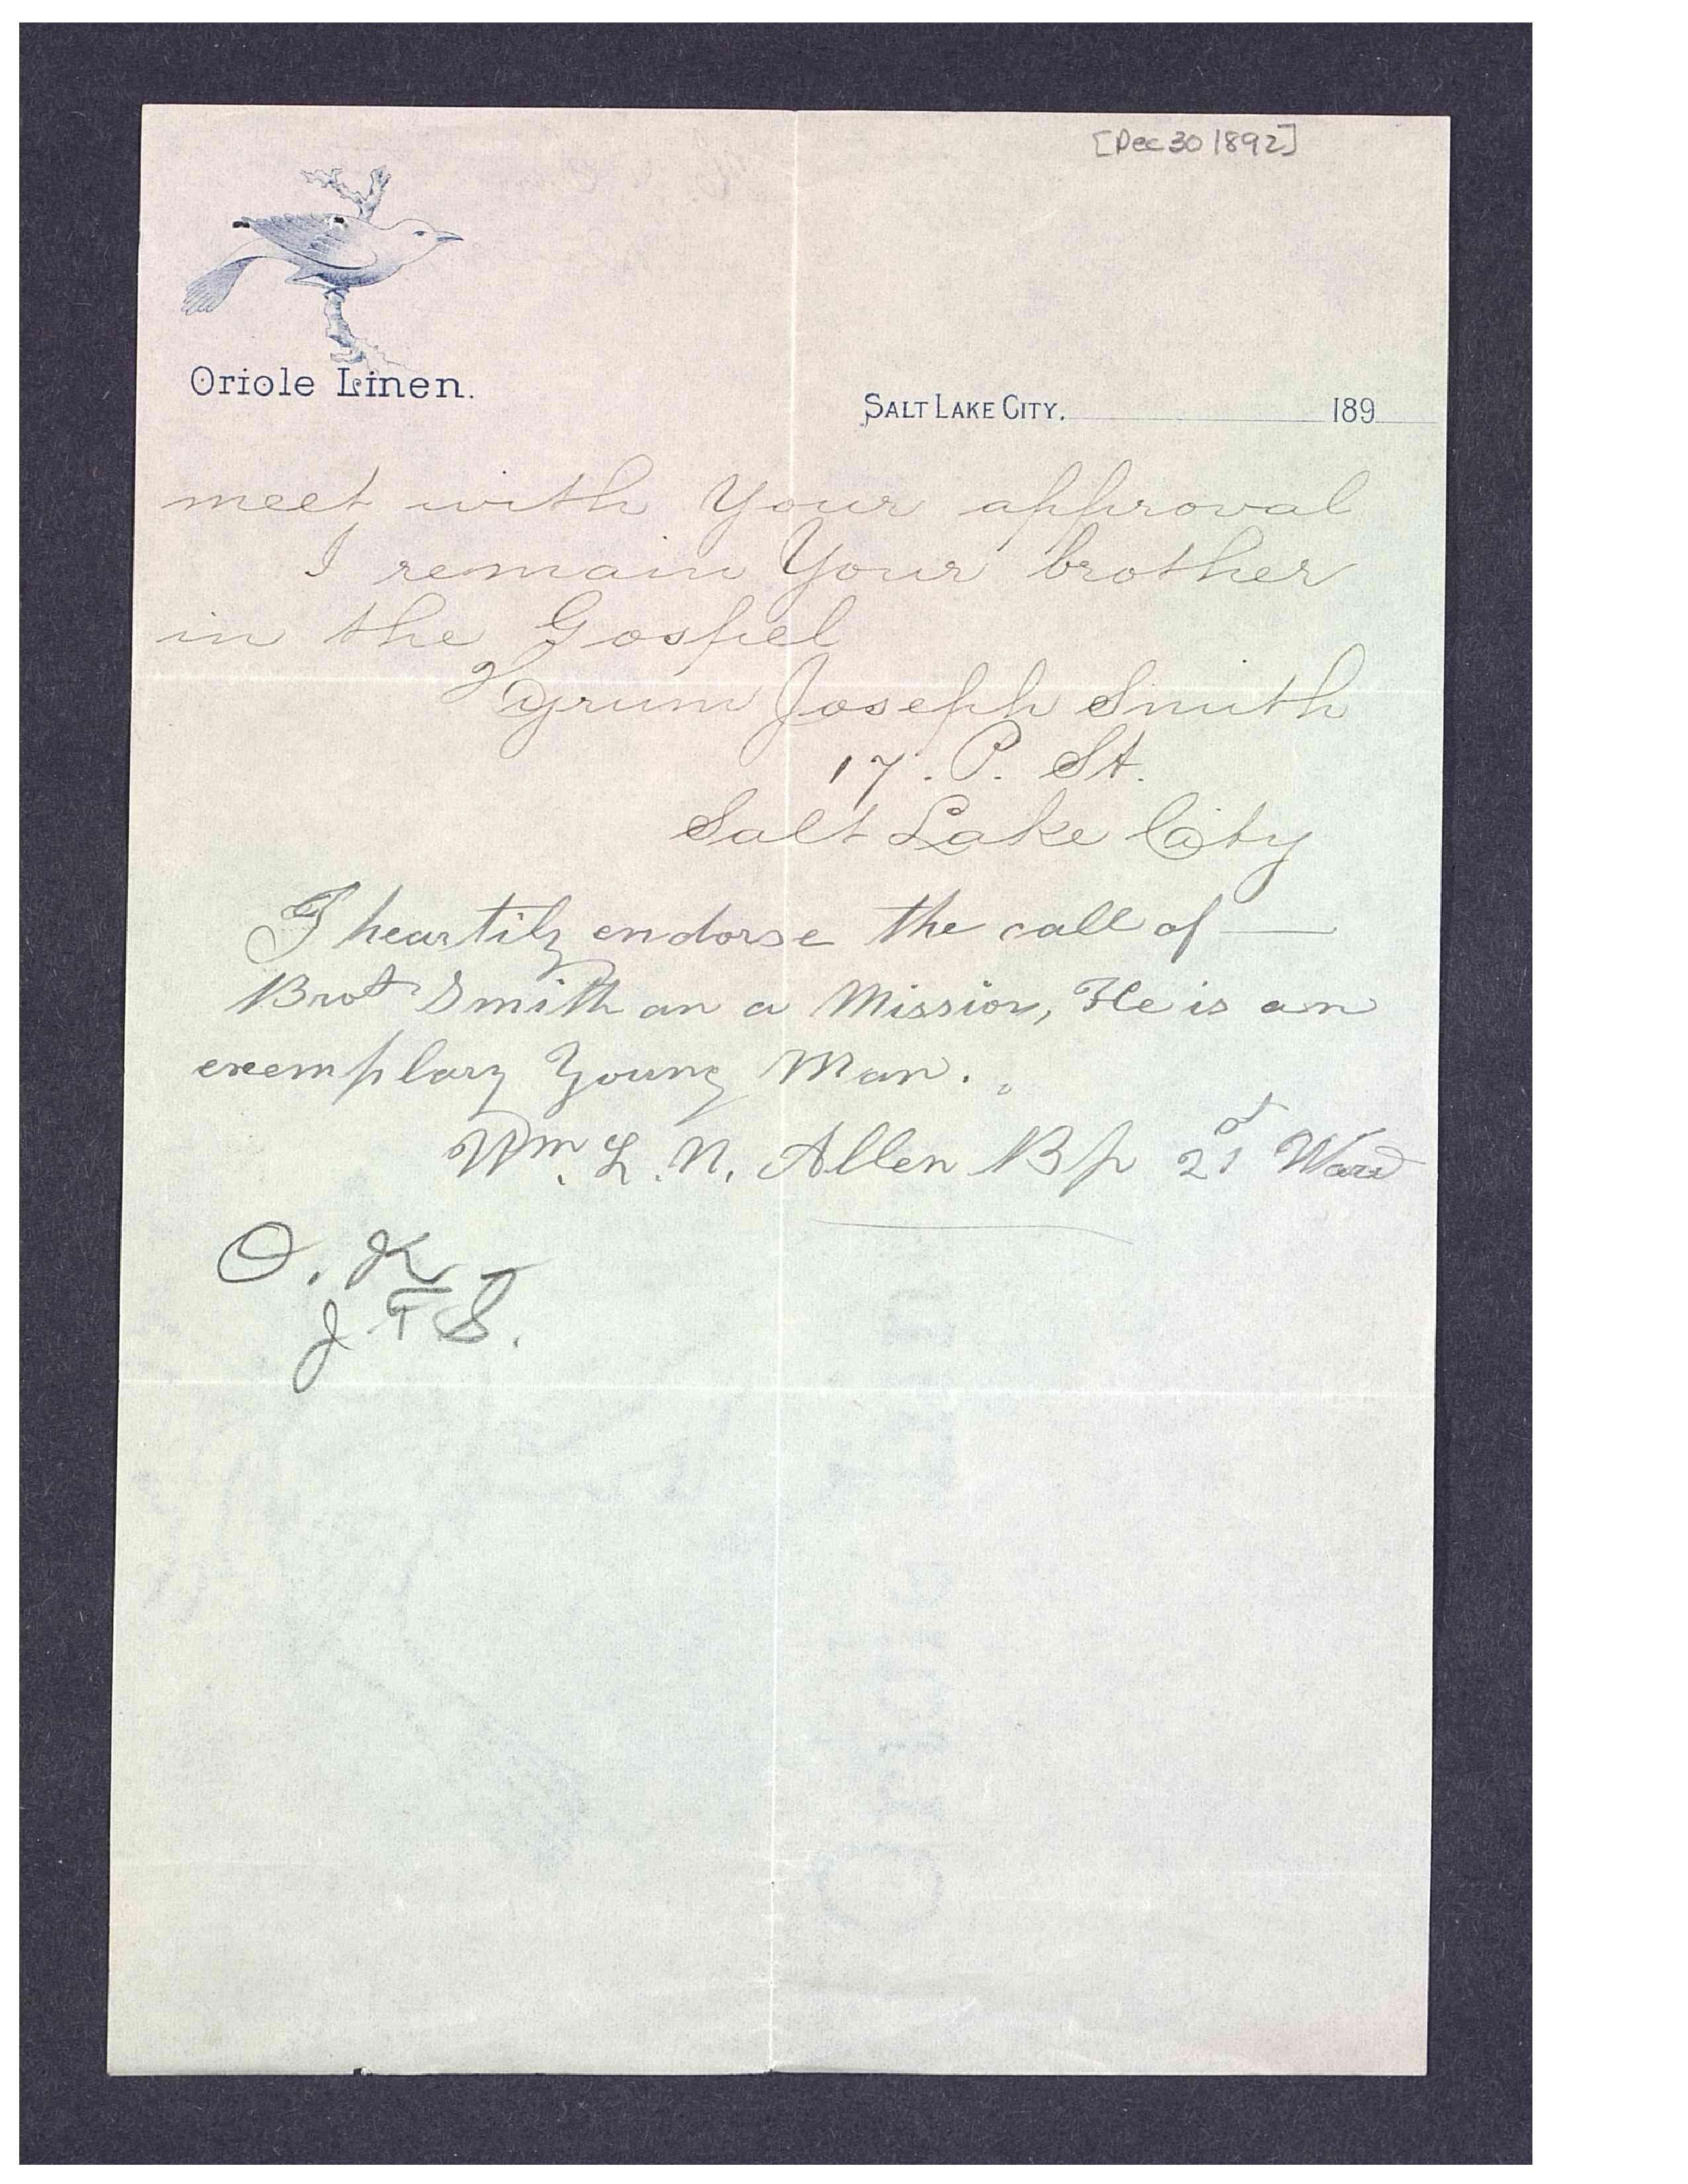 [Dec 30 1892]
Oriole Linen.
SALT LAKE CITY, 189
meet with Your approval
I remain Your brother
in the Gospel
Hyrum Joseph Smith
17. P. St.
Salt Lake City
I heartily endorse the call of —
Brot Smith on a Mission, He is an
exemplary Young Man.
Wm. L. N. Allen Bp 21st Ward
O. K
J. F. S.